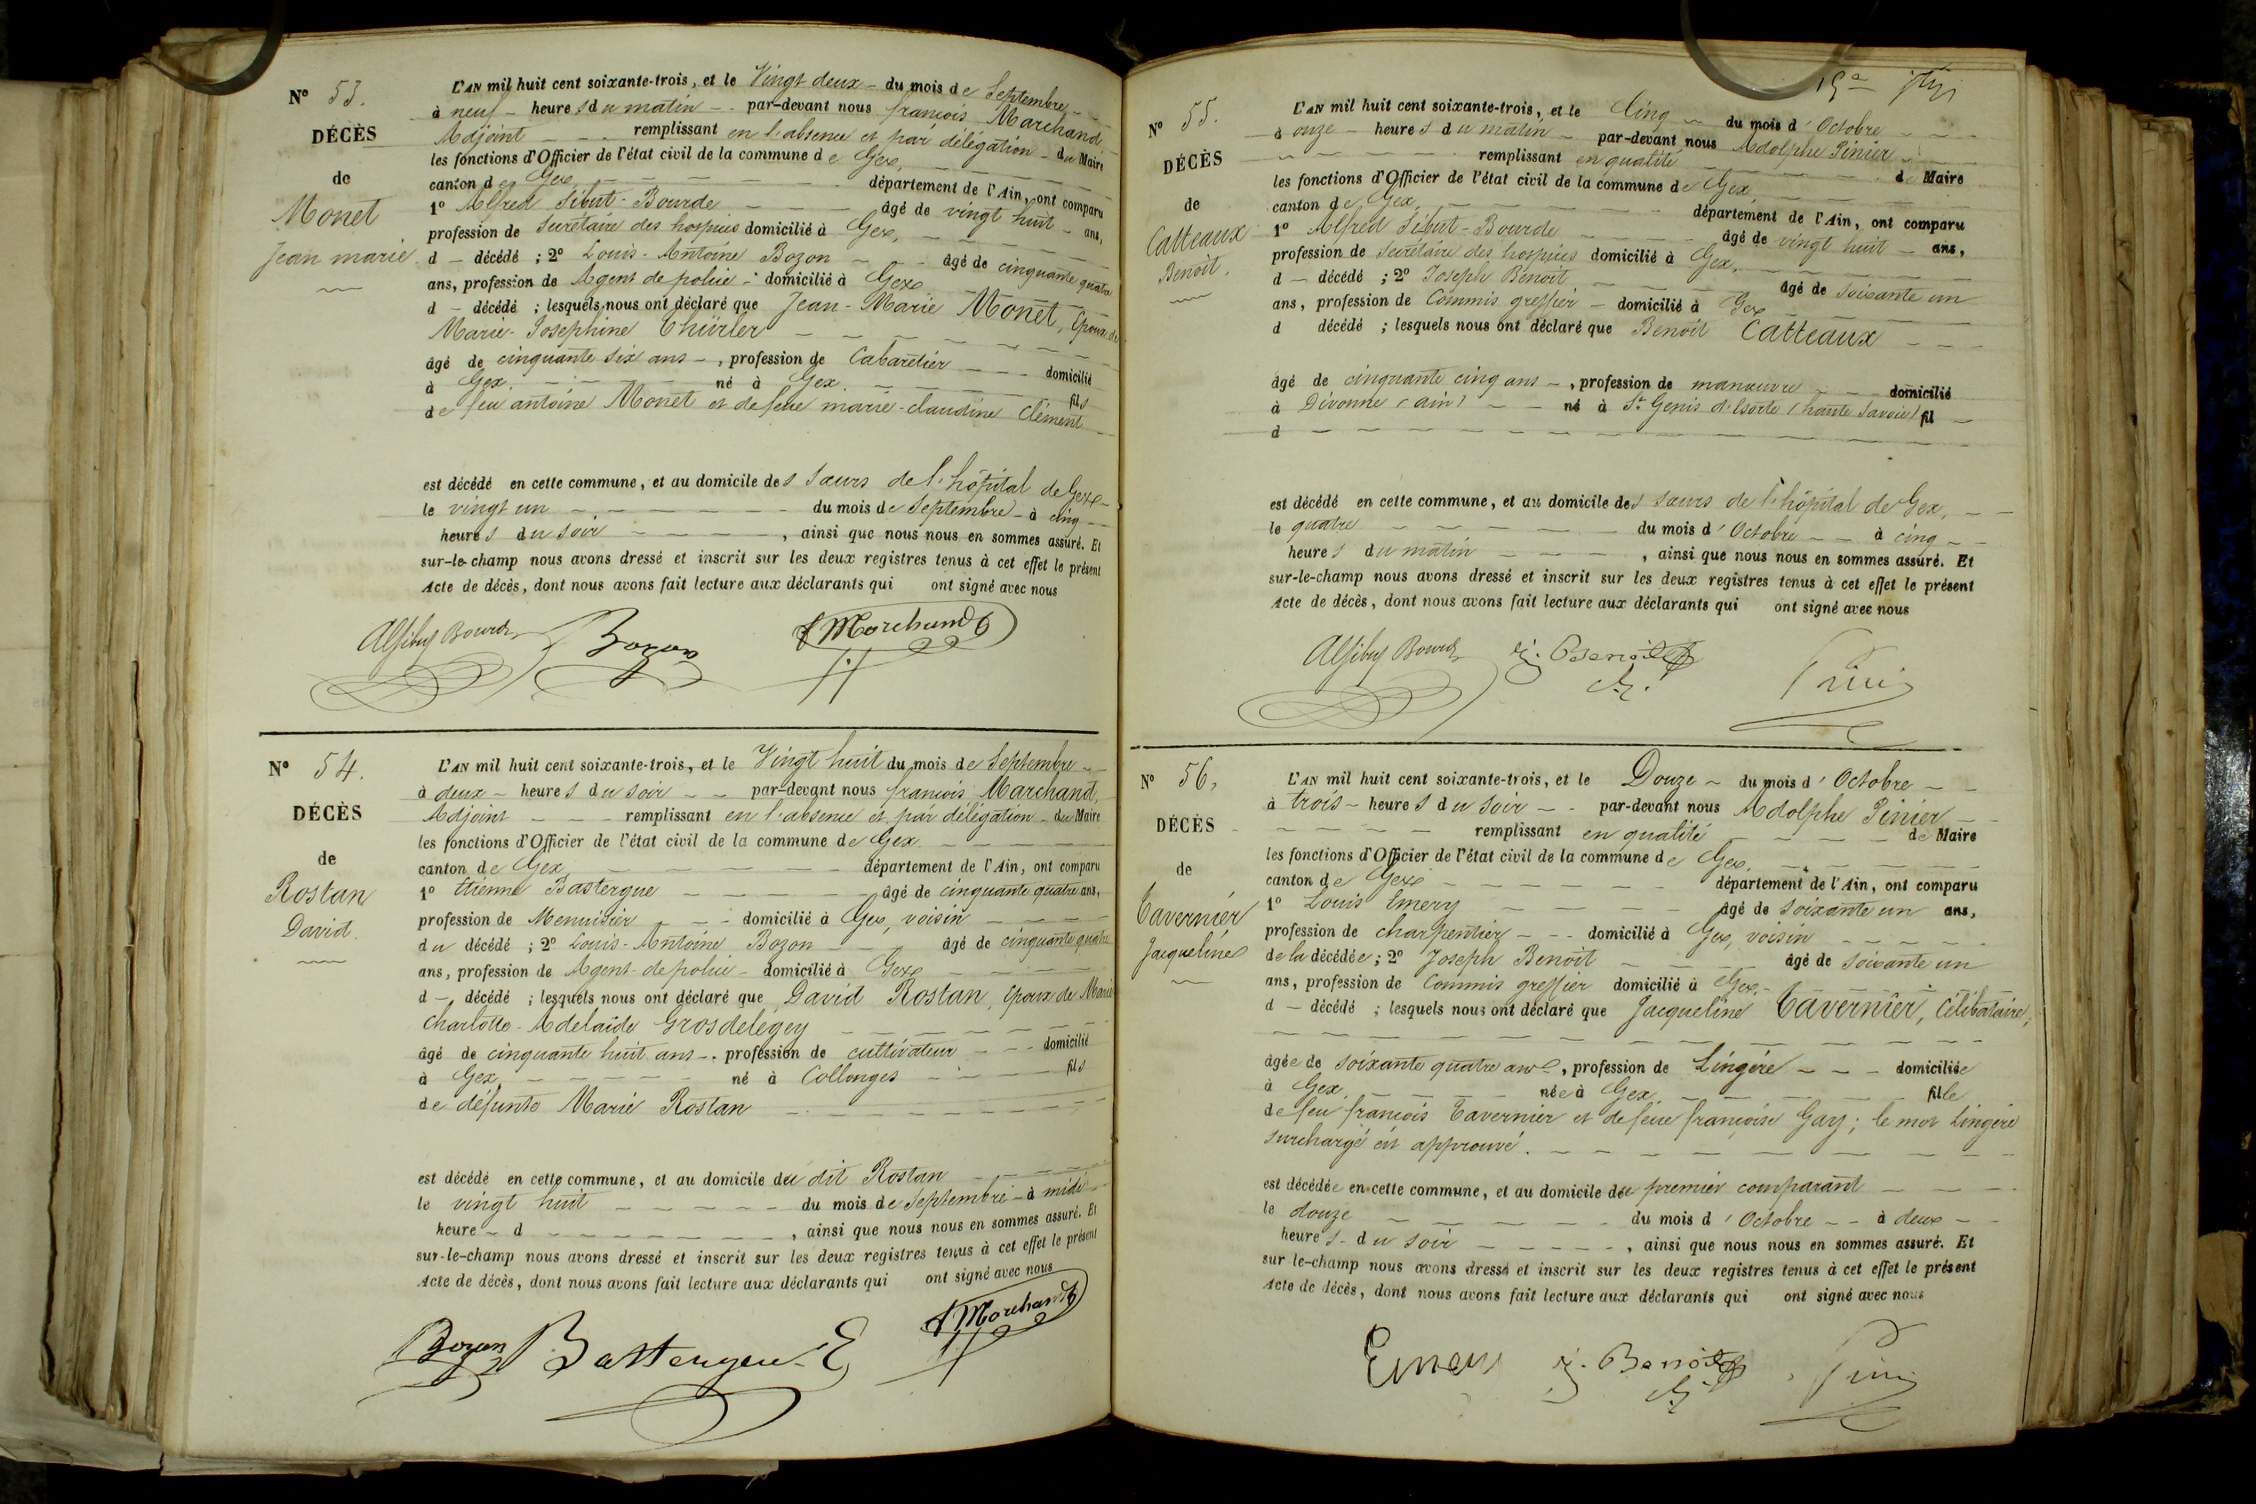 N° 53.
DÉCÈS
de
Monet
Jean marie
L'AN mil huit cent soixante-trois, et le Vingt deux - du mois de Septembre
à neuf - heures du matin - - par-devant nous françois Marchand,
Adjoint - - - remplissant en l'absence et par délégation - du Maire
les fonctions d'Officier de l'état civil de la commune de Gex
canton de Gex département de l'Ain, ont comparu
1° Alfred Sibut-Bourde âgé de vingt huit - ans,
profession de Secrétaire des hospices domicilié à Gex,
d - décédé ; 2° Louis-Antoine Bozon âgé de cinquante quatre
ans, profession de Agent de police - domicilié à Gex
d - décédé ; lesquels nous ont déclaré que Jean-Marie Monet, Epoux de
Marie-Josephine Thürler
âgé de cinquante six ans -, profession de Cabaretier domicilié
à Gex né à Gex fils
de feu antoine Monet et de feue marie-claudine Clément
est décédé en cette commune, et au domicile des Sœurs de l'hôpital de Gex
le vingt un du mois de Septembre - à cinq
heures du soir , ainsi que nous nous en sommes assuré. Et
sur-le-champ nous avons dressé et inscrit sur les deux registres tenus à cet effet le présent
Acte de décès, dont nous avons fait lecture aux déclarants qui ont signé avec nous
Bozon Marchand
N° 54.
DÉCÈS
de
Rostan
David
L'AN mil huit cent soixante-trois, et le Vingt huit du mois de Septembre
à deux - heures du soir - - par-devant nous françois Marchand,
Adjoint - - - remplissant en l'absence et par délégation - du Maire
les fonctions d'Officier de l'état civil de la commune de Gex
canton de Gex département de l'Ain, ont comparu
1° Etienne Bastergue âgé de cinquante quatre ans,
profession de Menuisier domicilié à Gex, voisin
du décédé ; 2° Louis-Antoine Bozon âgé de cinquante quatre
ans, profession de Agent-de police - domicilié à Gex
d - décédé ; lesquels nous ont déclaré que David Rostan, Epoux de Marie
Charlotte-Adelaïde Grosdelégey
âgé de cinquante huit ans -, profession de cultivateur domicilié
à Gex né à Collonges fils
de défunte Marie Rostan
est décédé en cette commune, et au domicile du dit Rostan
le vingt huit du mois de Septembre - à midi
heure - d , ainsi que nous nous en sommes assuré. Et
sur-le-champ nous avons dressé et inscrit sur les deux registres tenus à cet effet le présent
Acte de décès, dont nous avons fait lecture aux déclarants qui ont signé avec nous
Bozon Marchand
N° 55.
DÉCÈS
de
Catteaux
Benoit.
L'AN mil huit cent soixante-trois, et le Cinq - du mois d'Octobre
à onze - heures du matin - par-devant nous Adolphe Pinier
remplissant en qualité de Maire
les fonctions d'Officier de l'état civil de la commune de Gex
canton de Gex, département de l'Ain, ont comparu
1° Alfred Sibut-Bourde âgé de vingt huit - ans,
profession de Secrétaire des hospices domicilié à Gex,
d - décédé ; 2° Joseph Benoit âgé de soixante un
ans, profession de Commis greffier - domicilié à Gex
d décédé ; lesquels nous ont déclaré que Benoit Catteaux
âgé de cinquante cinq ans -, profession de manœuvre domicilié
à Divonne (ain) né à St Genis (haute Savoie) fil
d
est décédé en cette commune, et au domicile des sœurs de l'hôpital de Gex,
le quatre du mois d'Octobre - - à cinq
heures du matin , ainsi que nous nous en sommes assuré. Et
sur-le-champ nous avons dressé et inscrit sur les deux registres tenus à cet effet le présent
Acte de décès, dont nous avons fait lecture aux déclarants qui ont signé avec nous
j. Benoit
N° 56,
DÉCÈS
de
Tavernier
Jacqueline
L'AN mil huit cent soixante-trois, et le Douze - du mois d'Octobre
à trois - heures du soir - - par-devant nous Adolphe Pinier
remplissant en qualité de Maire
les fonctions d'Officier de l'état civil de la commune de Gex,
canton de Gex département de l'Ain, ont comparu
1° Louis Emery âgé de soixante un ans,
profession de charpentier - - domicilié à Gex, voisin
de la décédée ; 2° Joseph Benoit âgé de soixante un
ans, profession de Commis greffier domicilié à Gex,
d - décédé ; lesquels nous ont déclaré que Jacqueline Tavernier, Célibataire,
âgée de soixante quatre ans, profession de Lingère domiciliée
à Gex née à Gex fille
de feu françois Tavernier et de feue françoise Gay ; le mot Lingère
surchargé est approuvé.
est décédée en cette commune, et au domicile du premier comparant
le douze du mois d'Octobre - - à deux
heures - du soir , ainsi que nous nous en sommes assuré. Et
sur-le-champ nous avons dressé et inscrit sur les deux registres tenus à cet effet le présent
Acte de décès, dont nous avons fait lecture aux déclarants qui ont signé avec nous
Emery j. Benoit